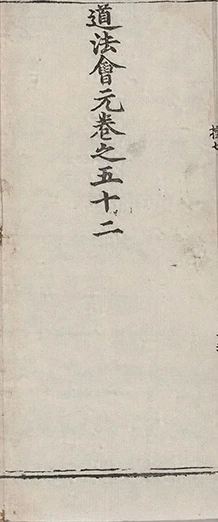 道法會元卷之五十二